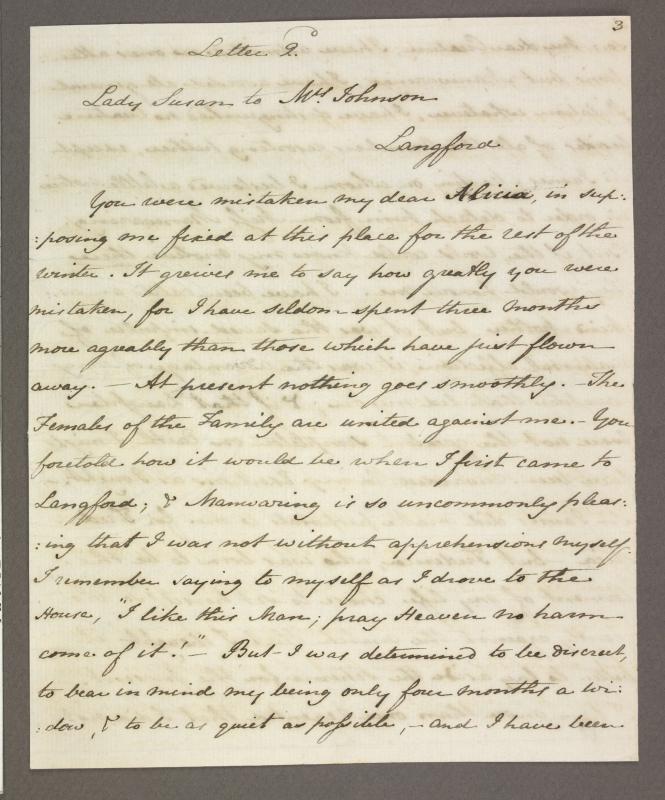 3
Letter 2.d
Lady Susan to Mrs Johnson
Langford
You were mistaken my dear Alicia, in sup:
:posing me fixed at this place for the rest of the
winter. It greives me to say how greatly you were
mistaken, for I have seldom spent three months
more agreably than those which have just flown
away. — At present nothing goes smoothly. — The
Females of the Family are united against me. — You
foretold how it would be when I first came to
Langford; & Manwaring is so uncommonly pleas:
:ing that I was not without apprehensions myself.
I remember saying to myself as I drove to the
House, "I like this Man; pray Heaven no harm
come of it!" — But I was determined to be discreet,
to bear in mind my being only four months a wi:
:dow, & to be as quiet as possible, — and I have been